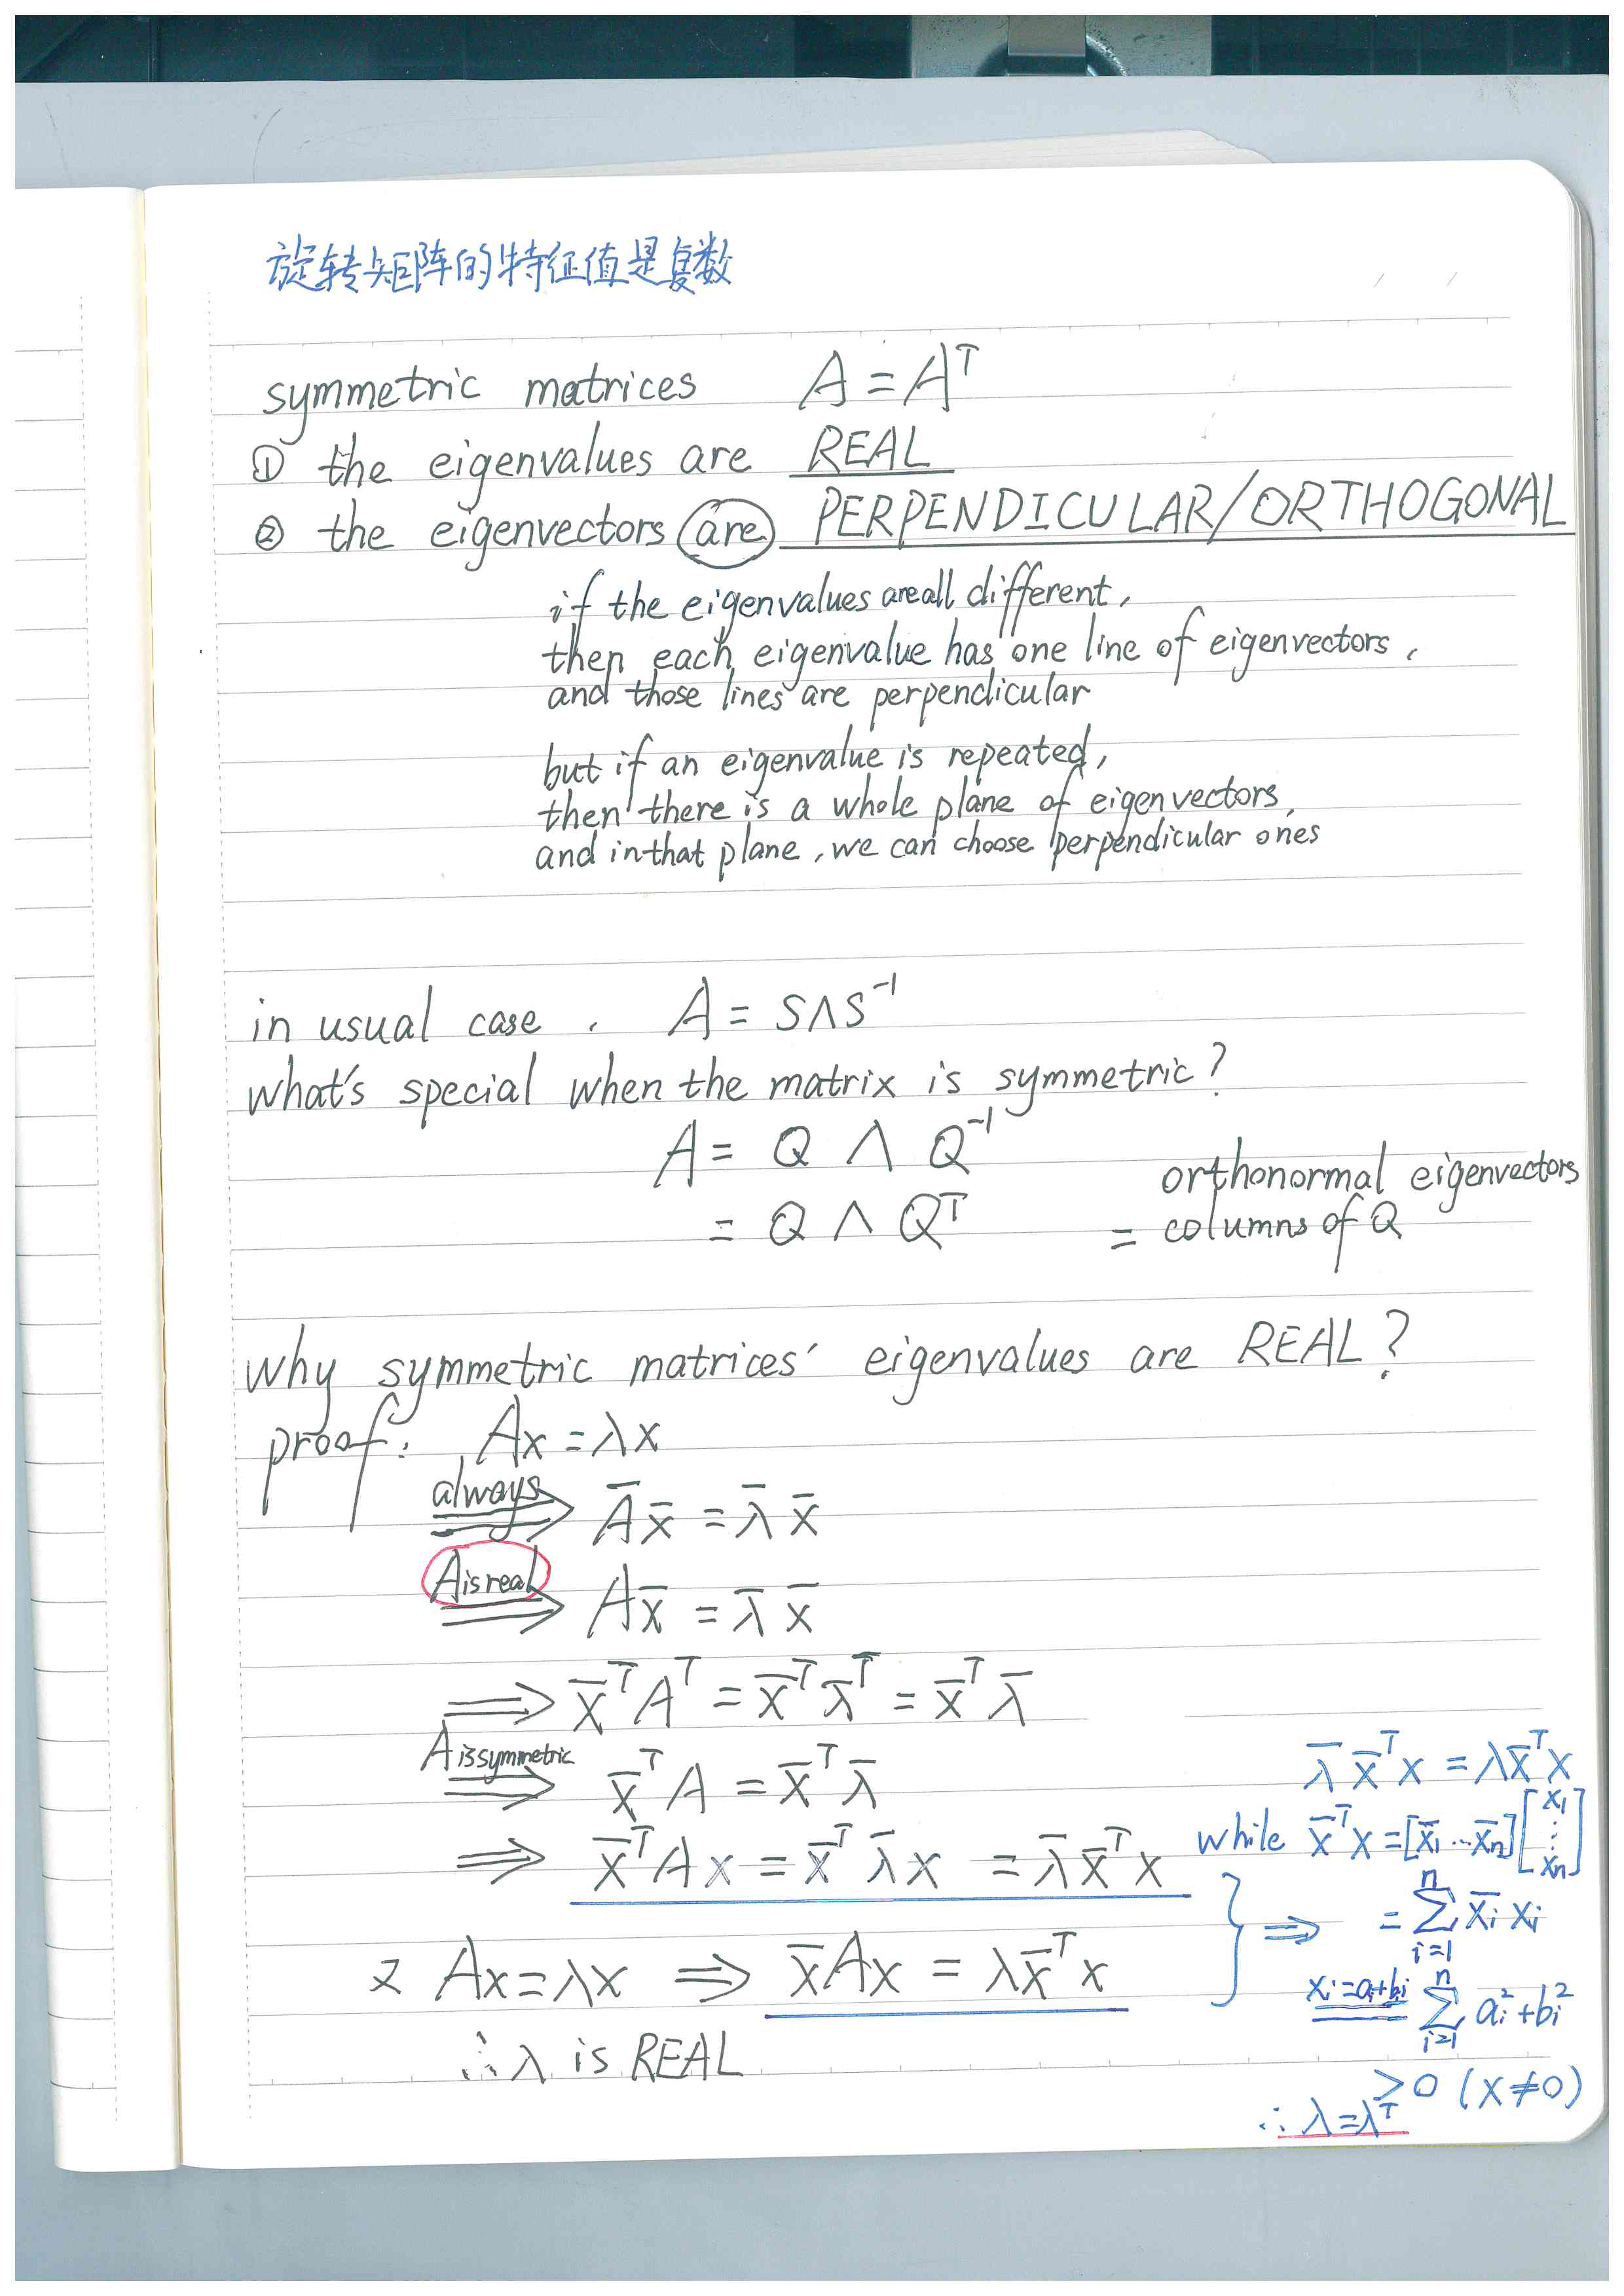 旋转矩阵的特征值是复数
symmetric matrices A = Aᵀ
① the eigenvalues are REAL
② the eigenvectors are PERPENDICULAR/ORTHOGONAL
if the eigenvalues are all different,
then each eigenvalue has one line of eigenvectors,
and those lines are perpendicular
but if an eigenvalue is repeated,
then there is a whole plane of eigenvectors,
and in that plane, we can choose perpendicular ones
in usual case, A = SΛS⁻¹
what's special when the matrix is symmetric?
A = Q Λ Q⁻¹
= Q Λ Qᵀ
orthonormal eigenvectors
= columns of Q
why symmetric matrices' eigenvalues are REAL?
proof: Ax = λx
always ⟹ A̅x̅ = λ̅x̅
A is real ⟹ Ax̅ = λ̅x̅
⟹ x̅ᵀAᵀ = x̅ᵀλ̅ᵀ = x̅ᵀλ̅
A is symmetric ⟹ x̅ᵀA = x̅ᵀλ̅
⟹ x̅ᵀAx = x̅ᵀλ̅x = λ̅x̅ᵀx
又 Ax = λx ⟹ x̅Ax = λx̅ᵀx
∴ λ is REAL
λ̅x̅ᵀx = λx̅ᵀx
while x̅ᵀx = [x̅₁ ... x̅n] [x₁ ⋮ xn]
} ⟹ = Σⁿᵢ₌₁ x̅ᵢ xᵢ
xᵢ=aᵢ+bᵢ = Σⁿᵢ₌₁ aᵢ²+bᵢ²
>0 (x≠0)
∴ λ=λᵀ